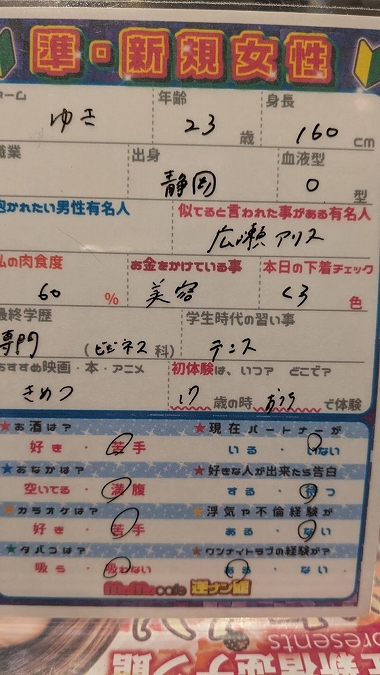 準・新規女性
ーム 年齢 身長
ゆき 23 歳 160 cm
職業 出身 血液型
静岡 O 型
抱かれたい男性有名人 似てると言われた事がある有名人
広瀬アリス
私の肉食度 お金をかけている事 本日の下着チェック
60 % 美容 くろ 色
最終学歴 学生時代の習い事
専門 (ビジネス 科) テニス
おすすめ映画・本・アニメ 初体験は、いつ? どこで?
きめつ 17 歳の時 おうち で体験
★お酒は? ★現在パートナーが
好き・苦手 いる・いない
★おなかは? ★好きな人が出来たら告白
空いてる・満腹 する・待つ
★カラオケは? ★浮気や不倫経験が
好き・苦手 ある・ない
★タバコは? ★ワンナイトラブの経験が?
吸う・吸わない ある・ない
MoMocafe 逆ナン館
新宿逆ナン館
presents